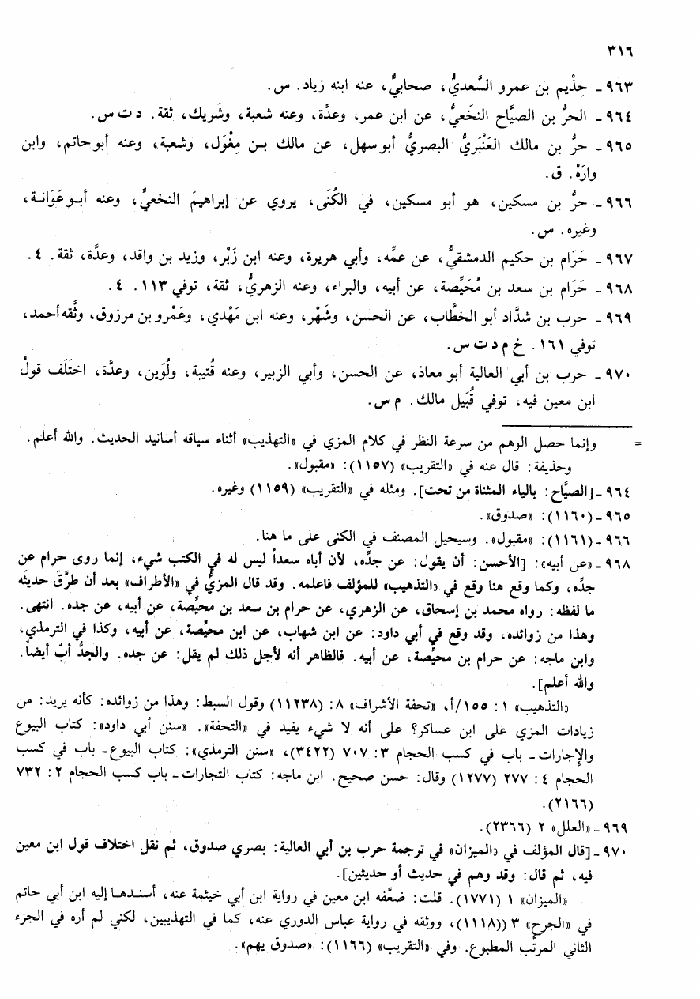 ٣١٦
٩٦٣ - حِذْيم بن عمرو السَّعديُّ، صحابيٌّ، عنه ابنه زياد. س.
٩٦٤ - الحرُّ بن الصيَّاح النخَعيُّ، عن ابن عمر، وعدَّة، وعنه شعبة، وشَريك، ثقة. د ت س.
٩٦٥ - حرُّ بن مالك العَنْبَريُّ البصريُّ أبو سهل، عن مالك بـن مِغْوَل، وشعبة، وعنه أبو حاتم، وابن
وارَهْ. ق.
٩٦٦ - حرُّ بن مسكين، هو أبو مسكين، في الكُنَى، يروي عن إبراهيمَ النخعيِّ، وعنه أبـو عَوَانـة،
وغيره. س.
٩٦٧ - حَرَام بن حكيم الدمشقيُّ، عن عمِّه، وأبي هريرة، وعنه ابن زَبْر، وزيد بن واقد، وعدَّة، ثقة. ٤.
٩٦٨ - حَرَام بن سعد بن مُحَيِّصة، عن أبيه، والبراء، وعنه الزهريُّ، ثقة، توفي ١١٣. ٤.
٩٦٩ - حرب بن شدَّاد أبو الخطَّاب، عن الحسن، وشَهْر، وعنه ابن مَهْدي، وعَمْرو بن مرزوق، وثَّقه أحمد،
توفي ١٦١. خ م د ت س.
٩٧٠ - حرب بن أبي العالية أبو معاذ، عن الحسن، وأبي الزبير، وعنه قُتيبة، ولُوَين، وعدَّة، اختَلَف قولُ
ابن معين فيه، توفي قُبَيل مالك. م س.
= وإنما حصل الوهم من سرعة النظر في كلام المزي في «التهذيب» أثناء سياقه أسانيد الحديث. والله أعلم.
وحذيفة: قال عنه في «التقريب» (١١٥٧): «مقبول».
٩٦٤ - [الصيَّاح: بالياء المثناة من تحت]. ومثله في «التقريب» (١١٥٩) وغيره.
٩٦٥ - (١١٦٠): «صدوق».
٩٦٦ - (١١٦١): «مقبول». وسيحيل المصنف في الكنى على ما هنا.
٩٦٨ - «عن أبيه»: [الأحسن: أن يقول: عن جدِّه، لأن أباه سعداً ليس له في الكتب شيء، إنما روى حرام عن
جدِّه، وكما وقع هنا وقع في «التذهيب» للمؤلف فاعلمه. وقد قال المزيُّ في «الأطراف» بعد أن طرَّق حديثَه
ما لفظه: رواه محمد بن إسحاق، عن الزهري، عن حرام بن سعد بن محيِّصة، عن أبيه، عن جده. انتهى.
وهذا من زوائده، وقد وقع في أبي داود: عن ابن شهاب، عن ابن محيِّصة، عن أبيه، وكذا في الترمذي،
وابن ماجه: عن حرام بن محيِّصة، عن أبيه. فالظاهر أنه لأجل ذلك لم يقل: عن جده. والجدُّ أبٌ أيضاً.
والله أعلم].
«التذهيب» ١: ١٥٥/أ، «تحفة الأشراف» ٨: (١١٢٣٨) وقول السبط: وهذا من زوائده: كأنه يريد: من
زيادات المزي على ابن عساكر؟ على أنه لا شيء يفيد في «التحفة». «سنن أبي داود»: كتاب البيوع
والإجارات - باب في كسب الحجام ٣: ٧٠٧ (٣٤٢٢)، «سنن الترمذي»: كتاب البيوع - باب في كسب
الحجام ٤: ٢٧٧ (١٢٧٧) وقال: حسن صحيح. ابن ماجه: كتاب التجارات - باب كسب الحجام ٢: ٧٣٢
(٢١٦٦).
٩٦٩ - «العلل» ٢ (٢٣٦٦).
٩٧٠ - [قال المؤلف في «الميزان» في ترجمة حرب بن أبي العالية: بصري صدوق، ثم نقل اختلاف قول ابن معين
فيه، ثم قال: وقد وهم في حديث أو حديثين].
«الميزان» ١ (١٧٧١). قلت: ضعَّفه ابن معين في رواية ابن أبي خيثمة عنه، أسندها إليه ابن أبي حاتم
في «الجرح» ٣ ((١١١٨))، ووثقه في رواية عباس الدوري عنه، كما في التهذيبين، لكني لم أره في الجزء
الثاني المرتَّب المطبوع. وفي «التقريب» (١١٦٦): «صدوق يهم».